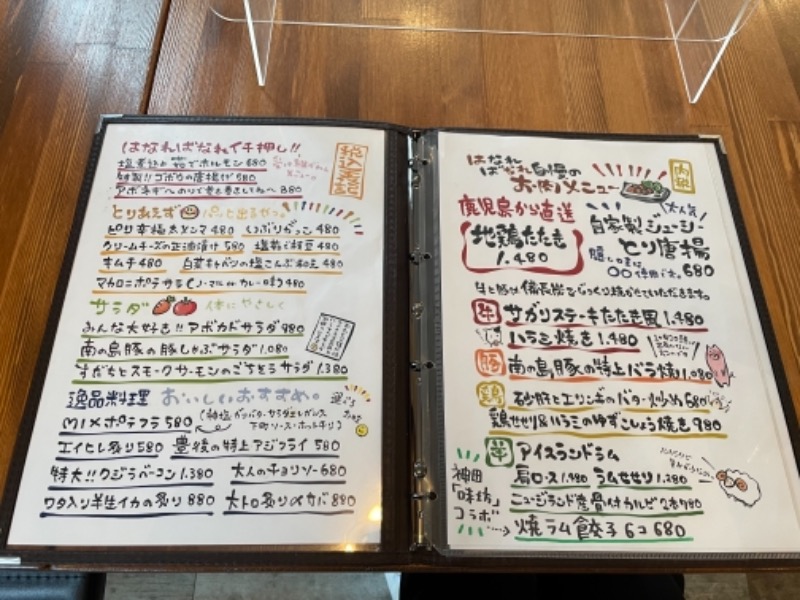 はなればなれイチ押し!!
税込表記
塩煮込み 茹でホルモン 680
特製!!ゴボウの唐揚げ 580
アボネギへのりで巻き巻きしてね〜 880
とりあえず パッと出るやつ。
ピリ辛極太メンマ 480
クリームチーズの正油漬け 580 塩茹で枝豆 480
キムチ 480 白菜キャベツの塩こんぶ和え 480
マカロニポテサラ(ノーマル or カレー味) 480
サラダ 体にやさしく
みんな大好き!!アボカドサラダ 980
南の島豚の豚しゃぶサラダ 1.080
すだちとスモークサーモンのごちそうサラダ 1.380
逸品料理 おいしいおすすめ。
MIXポテフラ 580
エイヒレ炙り 580 豊後の特上アジフライ 580
特大!!クジラベーコン 1.380 大人のチョリソー 680
ワタ入り半生イカの炙り 880 大トロ炙り〆サバ 880
はなればなれ自慢のお肉メニュー
鹿児島から直送
地鶏たたき
1.480
大人気
自家製ジューシー
とり唐揚
680
牛と豚は備長炭でじっくり焼かせていただきます。
牛 サガリステーキたたき風 1.480
ハラミ焼き 1.480
豚 南の島豚の特上バラ焼 1.080
鶏 砂肝とエリンギのバター炒め 680
鶏せせり&ハラミのゆずこしょう焼き 980
羊 アイスランドラム
肩ロース 1.480 ラムせせり 1.280
ニュージランド産骨付カルビ 2本 780
神田「味坊」コラボ
焼ラム餃子 6コ 680